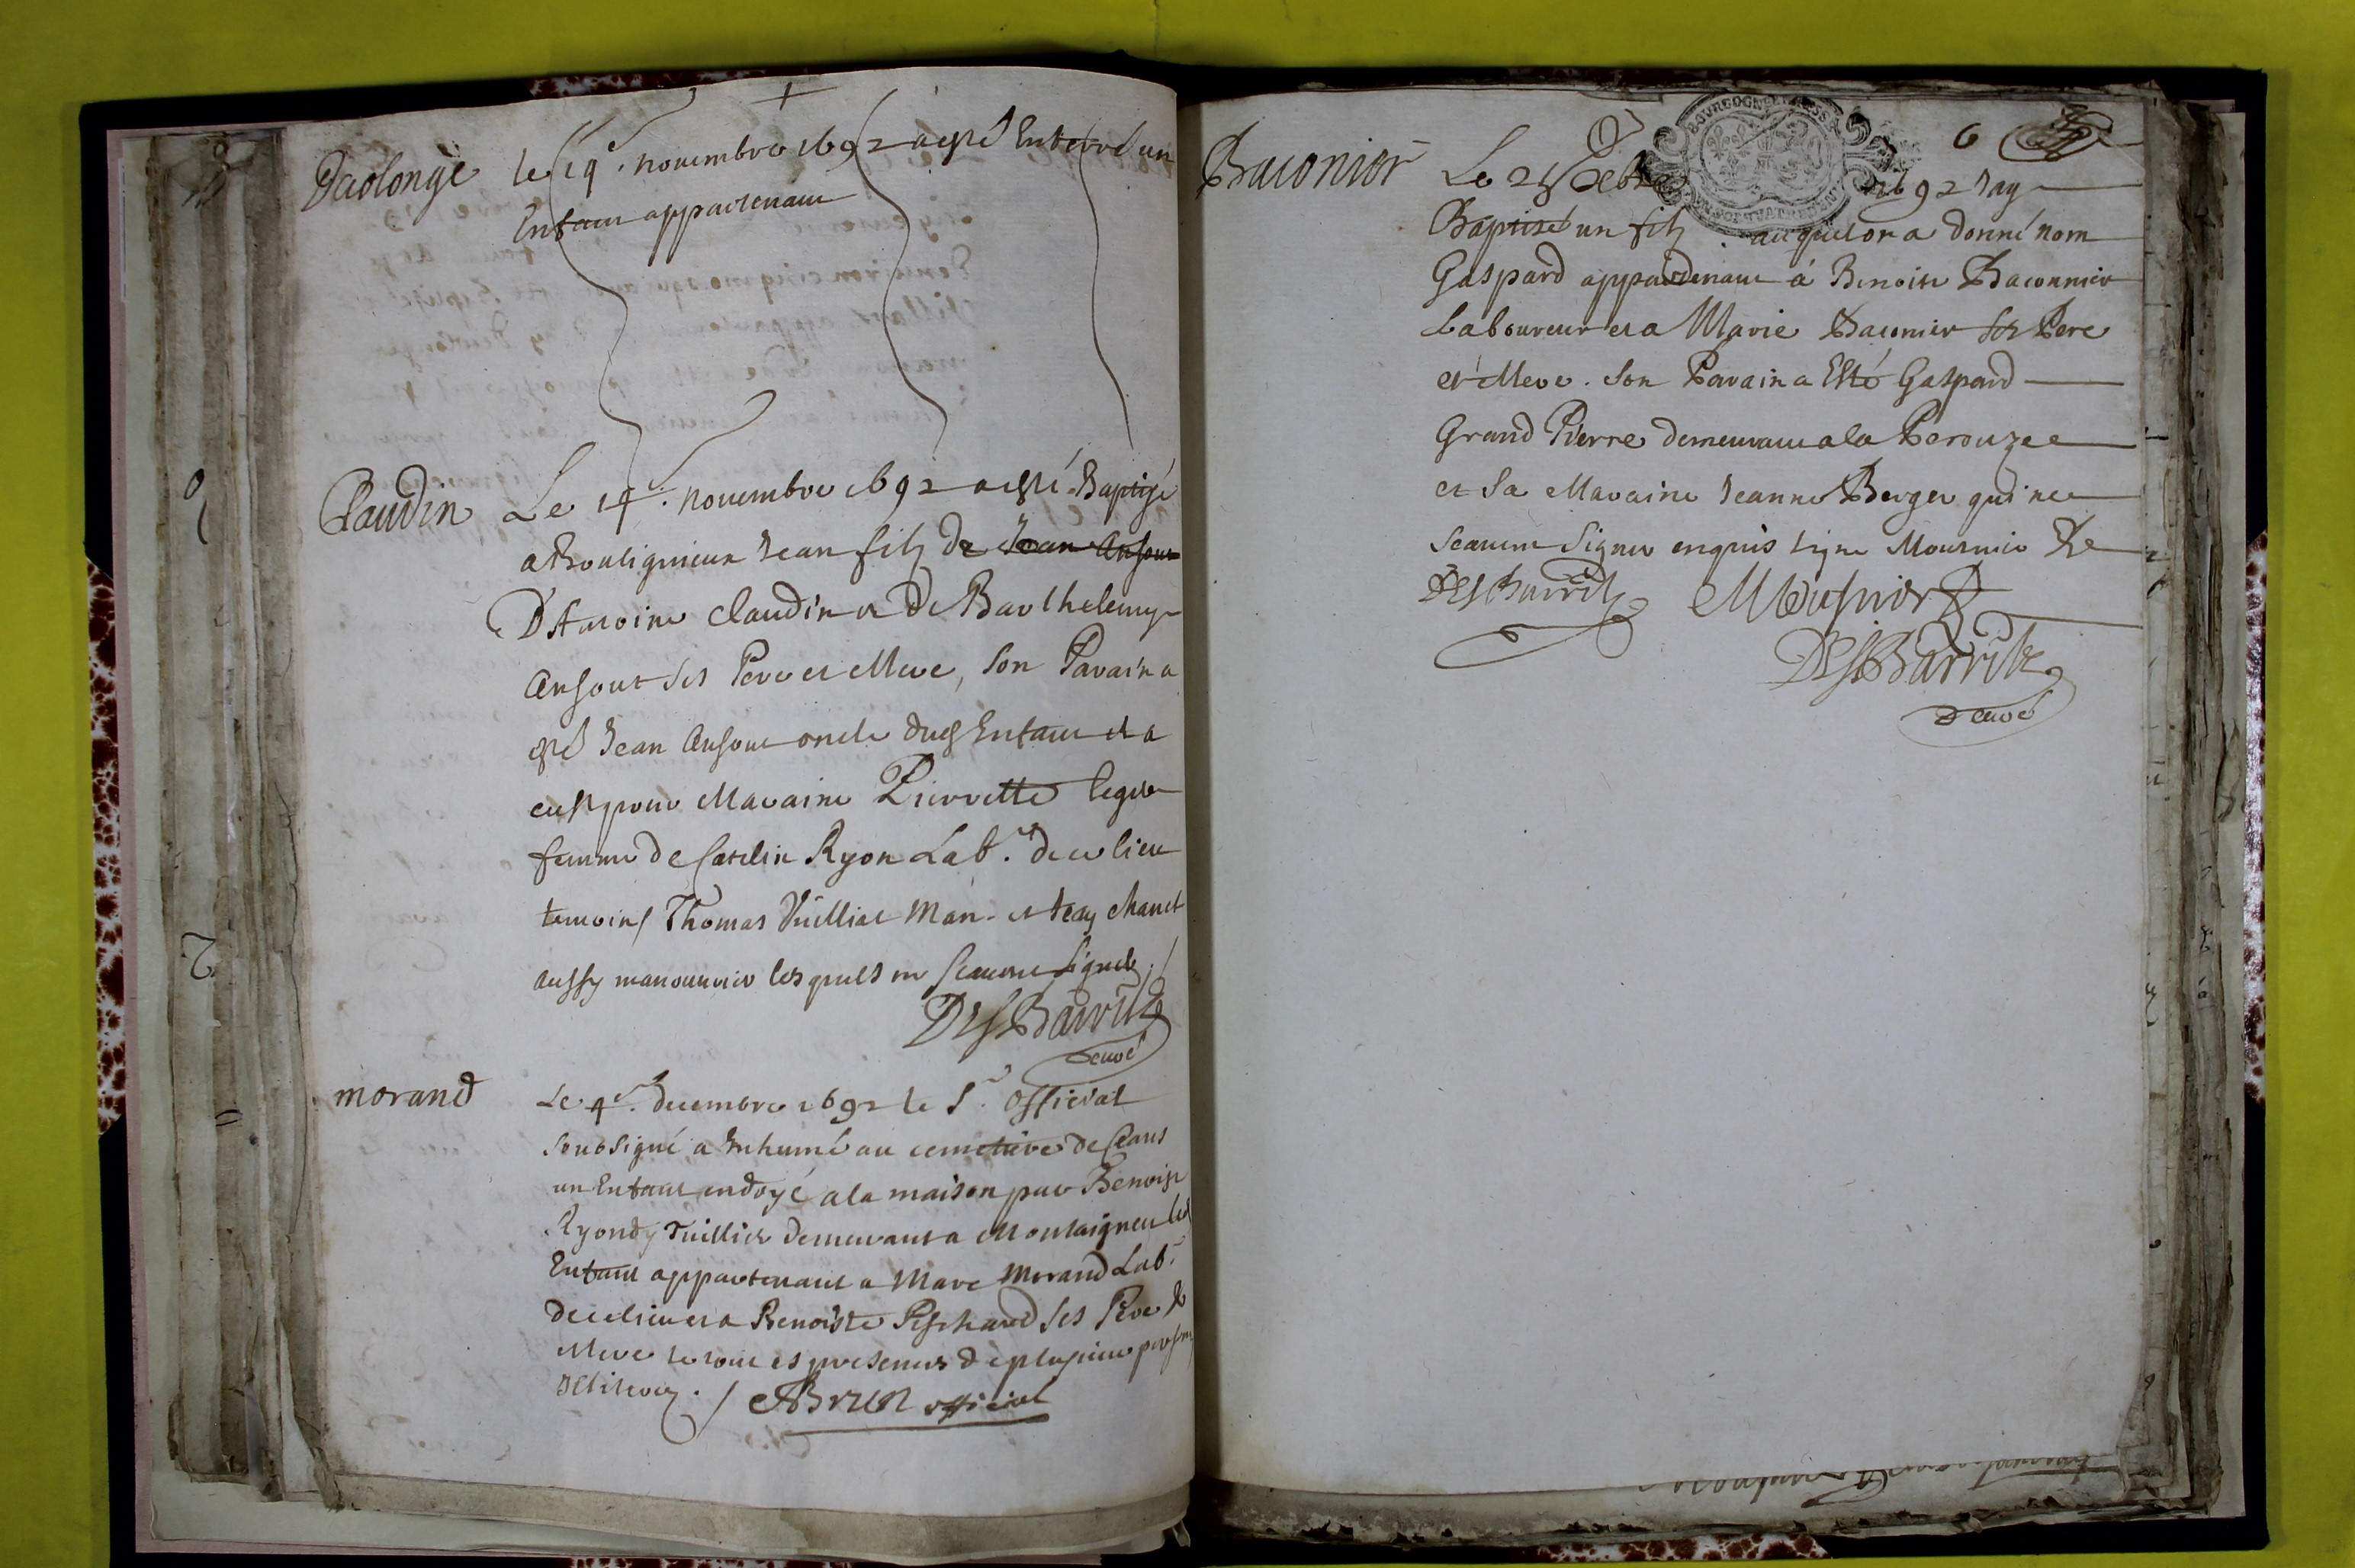 le 19e. nouembre 1692 a esté Enterré un
Enfant appartenant
Claudin
Le 14e. nouembre 1692 a esté Baptisé
a Bouligneux Jean filz de Jean Ansout
D'Antoine Claudin et De Barthelemye
Ansout ses Pere et Mere, son Parain a
esté Jean Ansout oncle dud Enfant et a
eust pour Maraine Pierrette
femme de Catelin Ryon Lab.r de ce lieu
temoins Thomas Vuilliat Man. et Jean Chanet
aussy manouurier les quels ne scauent signer ./
DesBarrilz
curé
morand
Le 4e. decembre 1692 le Sr. official
soubsigné a Inhumé au cemetiere de Ceans
un Enfant endoyé a la maison par Benoist
Ryondy Tuillier demeurant a Montaigneu led
Enfant appartenant a Marc Morand Lab.r
de ce lieu et a Benoiste ses Pere &
Mere le tout es presences de plusieurs
./ Brun official
6
BOURGOGNE ET BRESSE
Baconier
Le 25 1692 Jay
Baptisé un filz auquel on a donné nom
Gaspard appartenant à Benoist Baconnier
Laboureur et a Marie Baconier ses Pere
et Mere. son Parain a Esté Gaspard
Grand Pierre demeurant a la Perouze
et Sa Maraine Jeanne Berger qui ne
Scauent Signer enquis signe Mousnier &
DesBarrilz Mousnier
DesBarrilz
curé